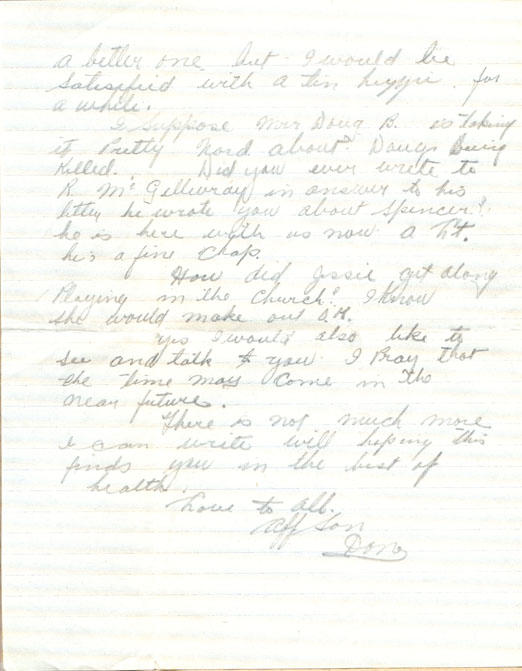 a better one but I would be
satesfied with a tin lizzie for
a while.
I Suppose Mrs Doug B. is taking
it Pretty hard about Dougs Being
Killed. Did you ever write to
R. McGillivray in answer to his
letter he wrote you about Spencer?
he is here with us now a Lt.
he's a fine chap.
How did Jessie get along
Playing in the Church? I know
she would make out O.K.
Yes I would also like to
see and talk to you I Pray that
the time may come in the
near future.
There is not much more
I can write will hoping this
finds you in the best of
health.
Love to all.
Aff Son